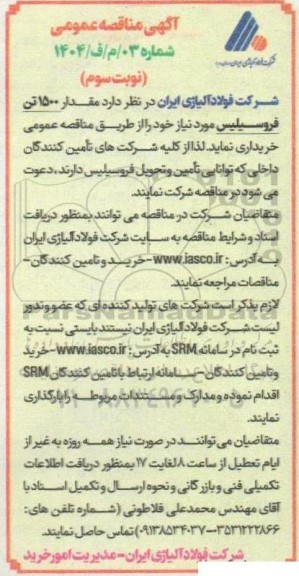 آگهی مناقصه عمومی
شماره ۰۳/م/ف/۱۴۰۴
(نوبت سوم)
شرکت فولاد آلیاژی ایران در نظر دارد مقدار ۱۵۰۰ تن
فروسیلیس مورد نیاز خود را از طریق مناقصه عمومی
خریداری نماید. لذا از کلیه شرکت های تأمین کنندگان
داخلی که توانایی تأمین و تحویل فروسیلیس دارند، دعوت
می شود در مناقصه شرکت نمایند.
متقاضیان شرکت در مناقصه می توانند بمنظور دریافت
اسناد و شرایط مناقصه به سایت شرکت فولاد آلیاژی ایران
به آدرس: www.iasco.ir - خرید و تامین کنندگان -
مناقصات مراجعه نمایند.
لازم بذکر است شرکت های تولید کننده ای که عضو وندور
لیست شرکت فولاد آلیاژی ایران نیستند بایستی نسبت به
ثبت نام در سامانه SRM به آدرس: www.iasco.ir - خرید
و تامین کنندگان - سامانه ارتباط با تامین کنندگان SRM
اقدام نموده و مدارک و مستندات مربوطه را بارگذاری
نمایند.
متقاضیان می توانند در صورت نیاز همه روزه به غیر از
ایام تعطیل از ساعت ۸ لغایت ۱۷ بمنظور دریافت اطلاعات
تکمیلی فنی و بازرگانی و نحوه ارسال و تکمیل اسناد با
آقای مهندس محمدعلی فلاطونی (شماره تلفن های:
۰۳۵۳۱۲۲۲۸۶۶-۰۹۱۳۸۵۳۴۰۳۷) تماس حاصل نمایند.
شرکت فولاد آلیاژی ایران - مدیریت امور خرید